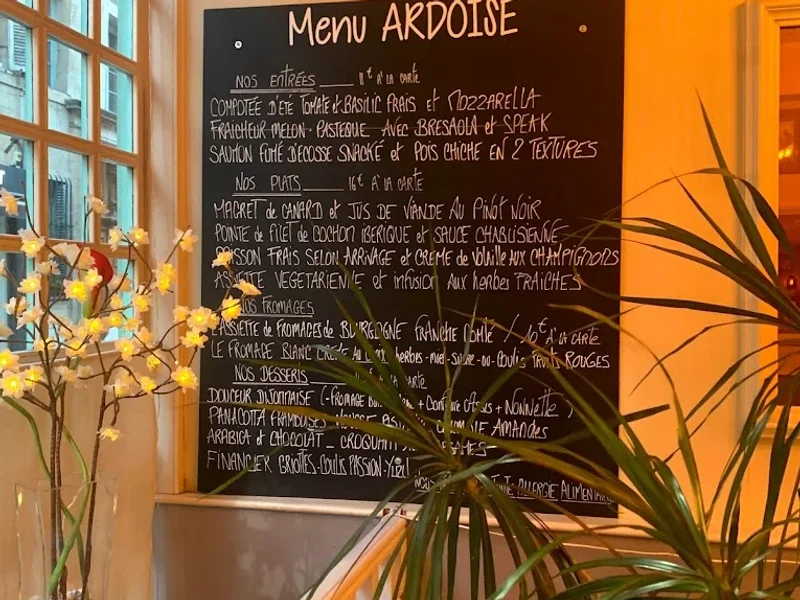 Menu ARDOISE
NOS ENTRÉES ____ 11€ À LA CARTE
COMPOTÉE D'ÉTÉ TOMATE et BASILIC FRAIS et MOZZARELLA
FRAICHEUR MELON - PASTEQUE AVEC BRESAOLA et SPEAK
SAUMON FUMÉ D'ECOSSE SNACKÉ et POIS CHICHE EN 2 TEXTURES
NOS PLATS ____ 16€ À LA CARTE
MAGRET de CANARD et JUS DE VIANDE AU PINOT NOIR
POINTE de FILET de COCHON IBERIQUE et SAUCE CHABLISIENNE
POISSON FRAIS SELON ARRIVAGE et CREME de VOLAILLE AUX CHAMPIGNONS
ASSIETTE VEGETARIENNE et infusion Aux herbes FRAICHES
NOS FROMAGES
L'ASSIETTE de FROMAGES de BOURGOGNE FRANCHE COMTÉ / 10€ À LA CARTE
LE FROMAGE BLANC herbes - miel - SUCRE - OU - COULIS FRUITS ROUGES
NOS DESSERTS À LA CARTE
DOUCEUR DIJONNAISE (- FROMAGE + CONFITURE CASSIS + NONNETTE)
PANACOTTA FRAMBOISES AMANDES
ARABICA et CHOCOLAT - CROQUANT
FINANCIER GRIOTTES - COULIS PASSION - YUZU
ALLERGIE ALIMENTAIRE